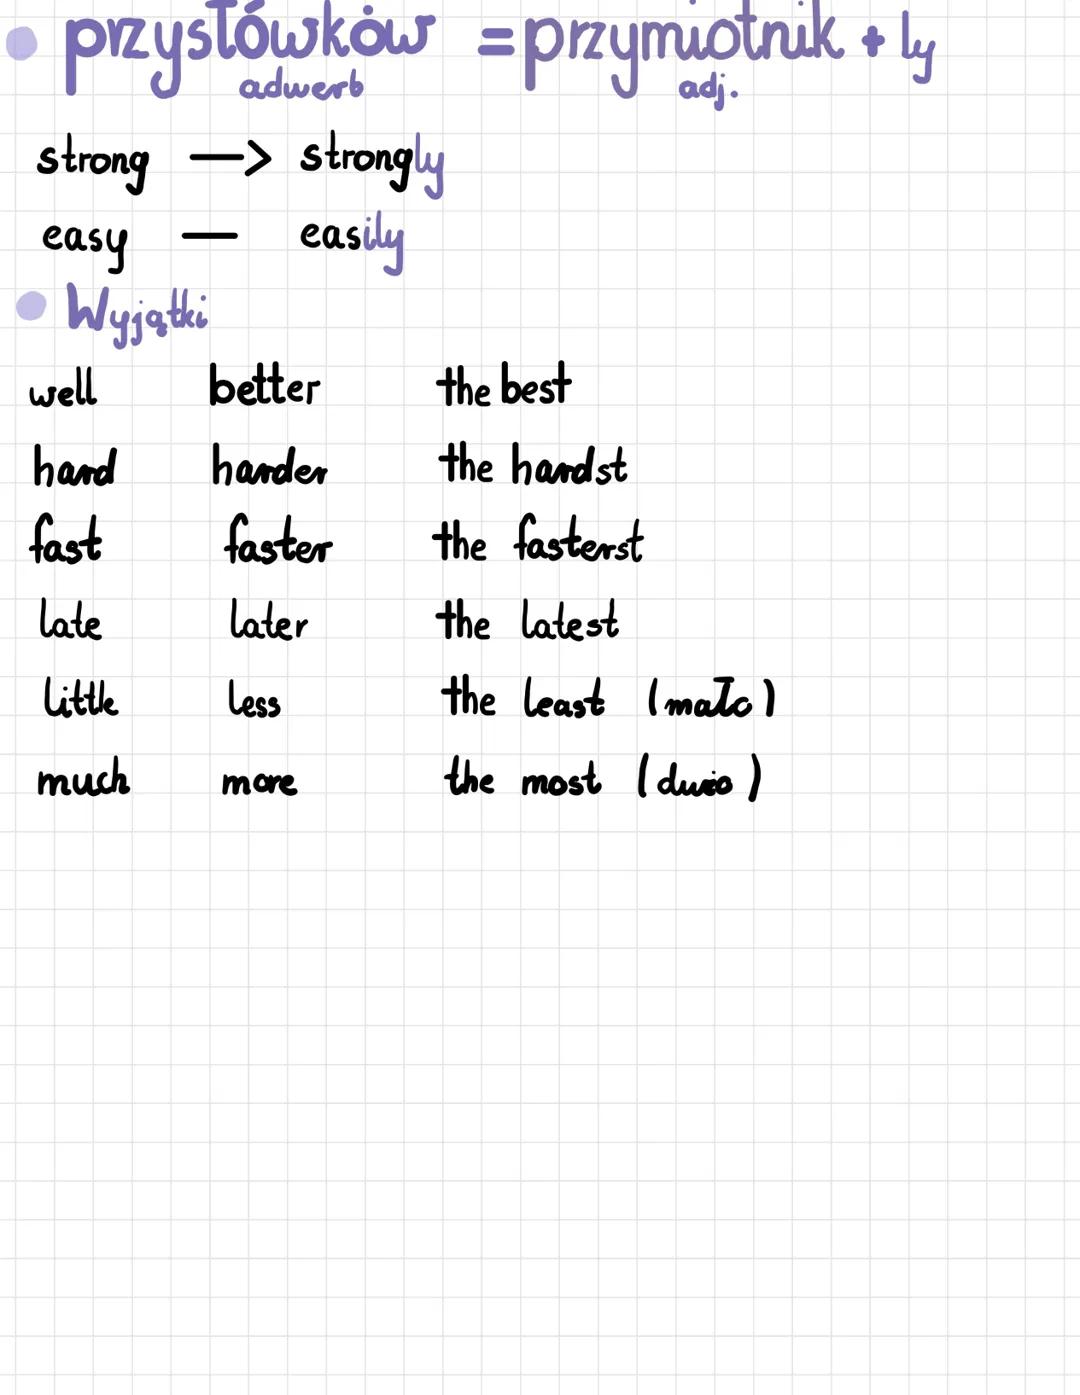 przysłówków = przymiotnik + ly
adwerb adj.
strong —> strongly
easy — easily
Wyjątki
well better the best
hard harder the hardst
fast faster the fasterst
late later the latest
little less the least (mało)
much more the most (dużo)